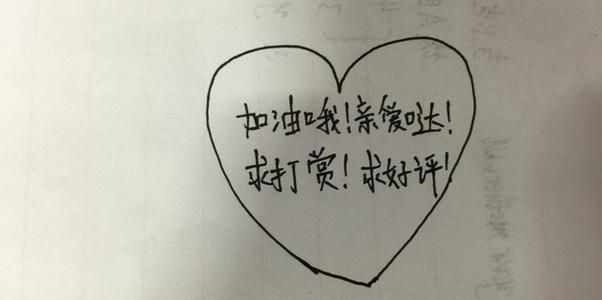 加油哦!亲爱哒!
求打赏!求好评!